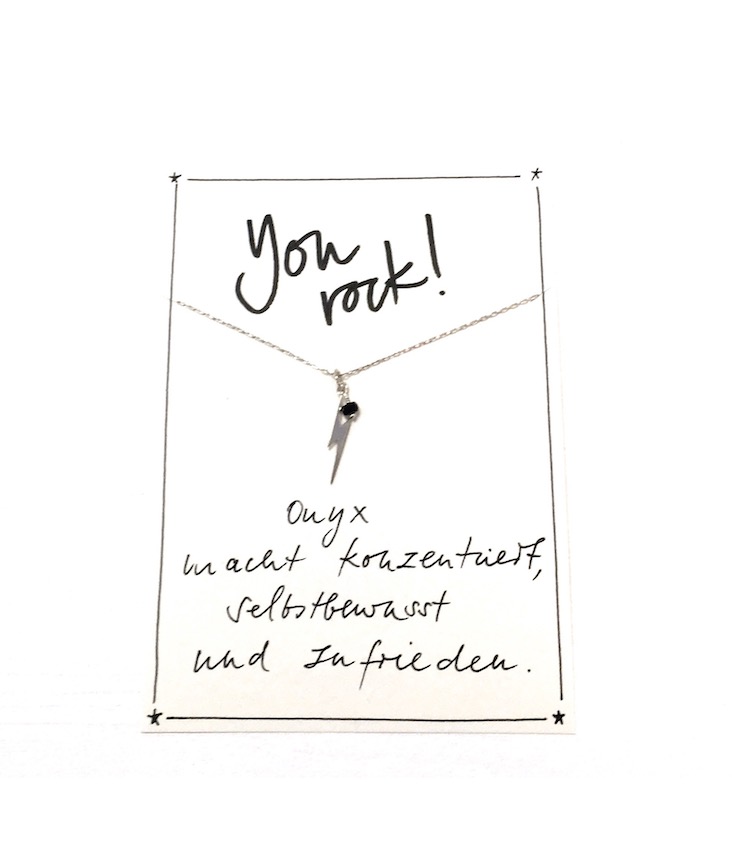 You
rock!
Onyx
macht konzentriert,
selbstbewusst
und zufrieden.